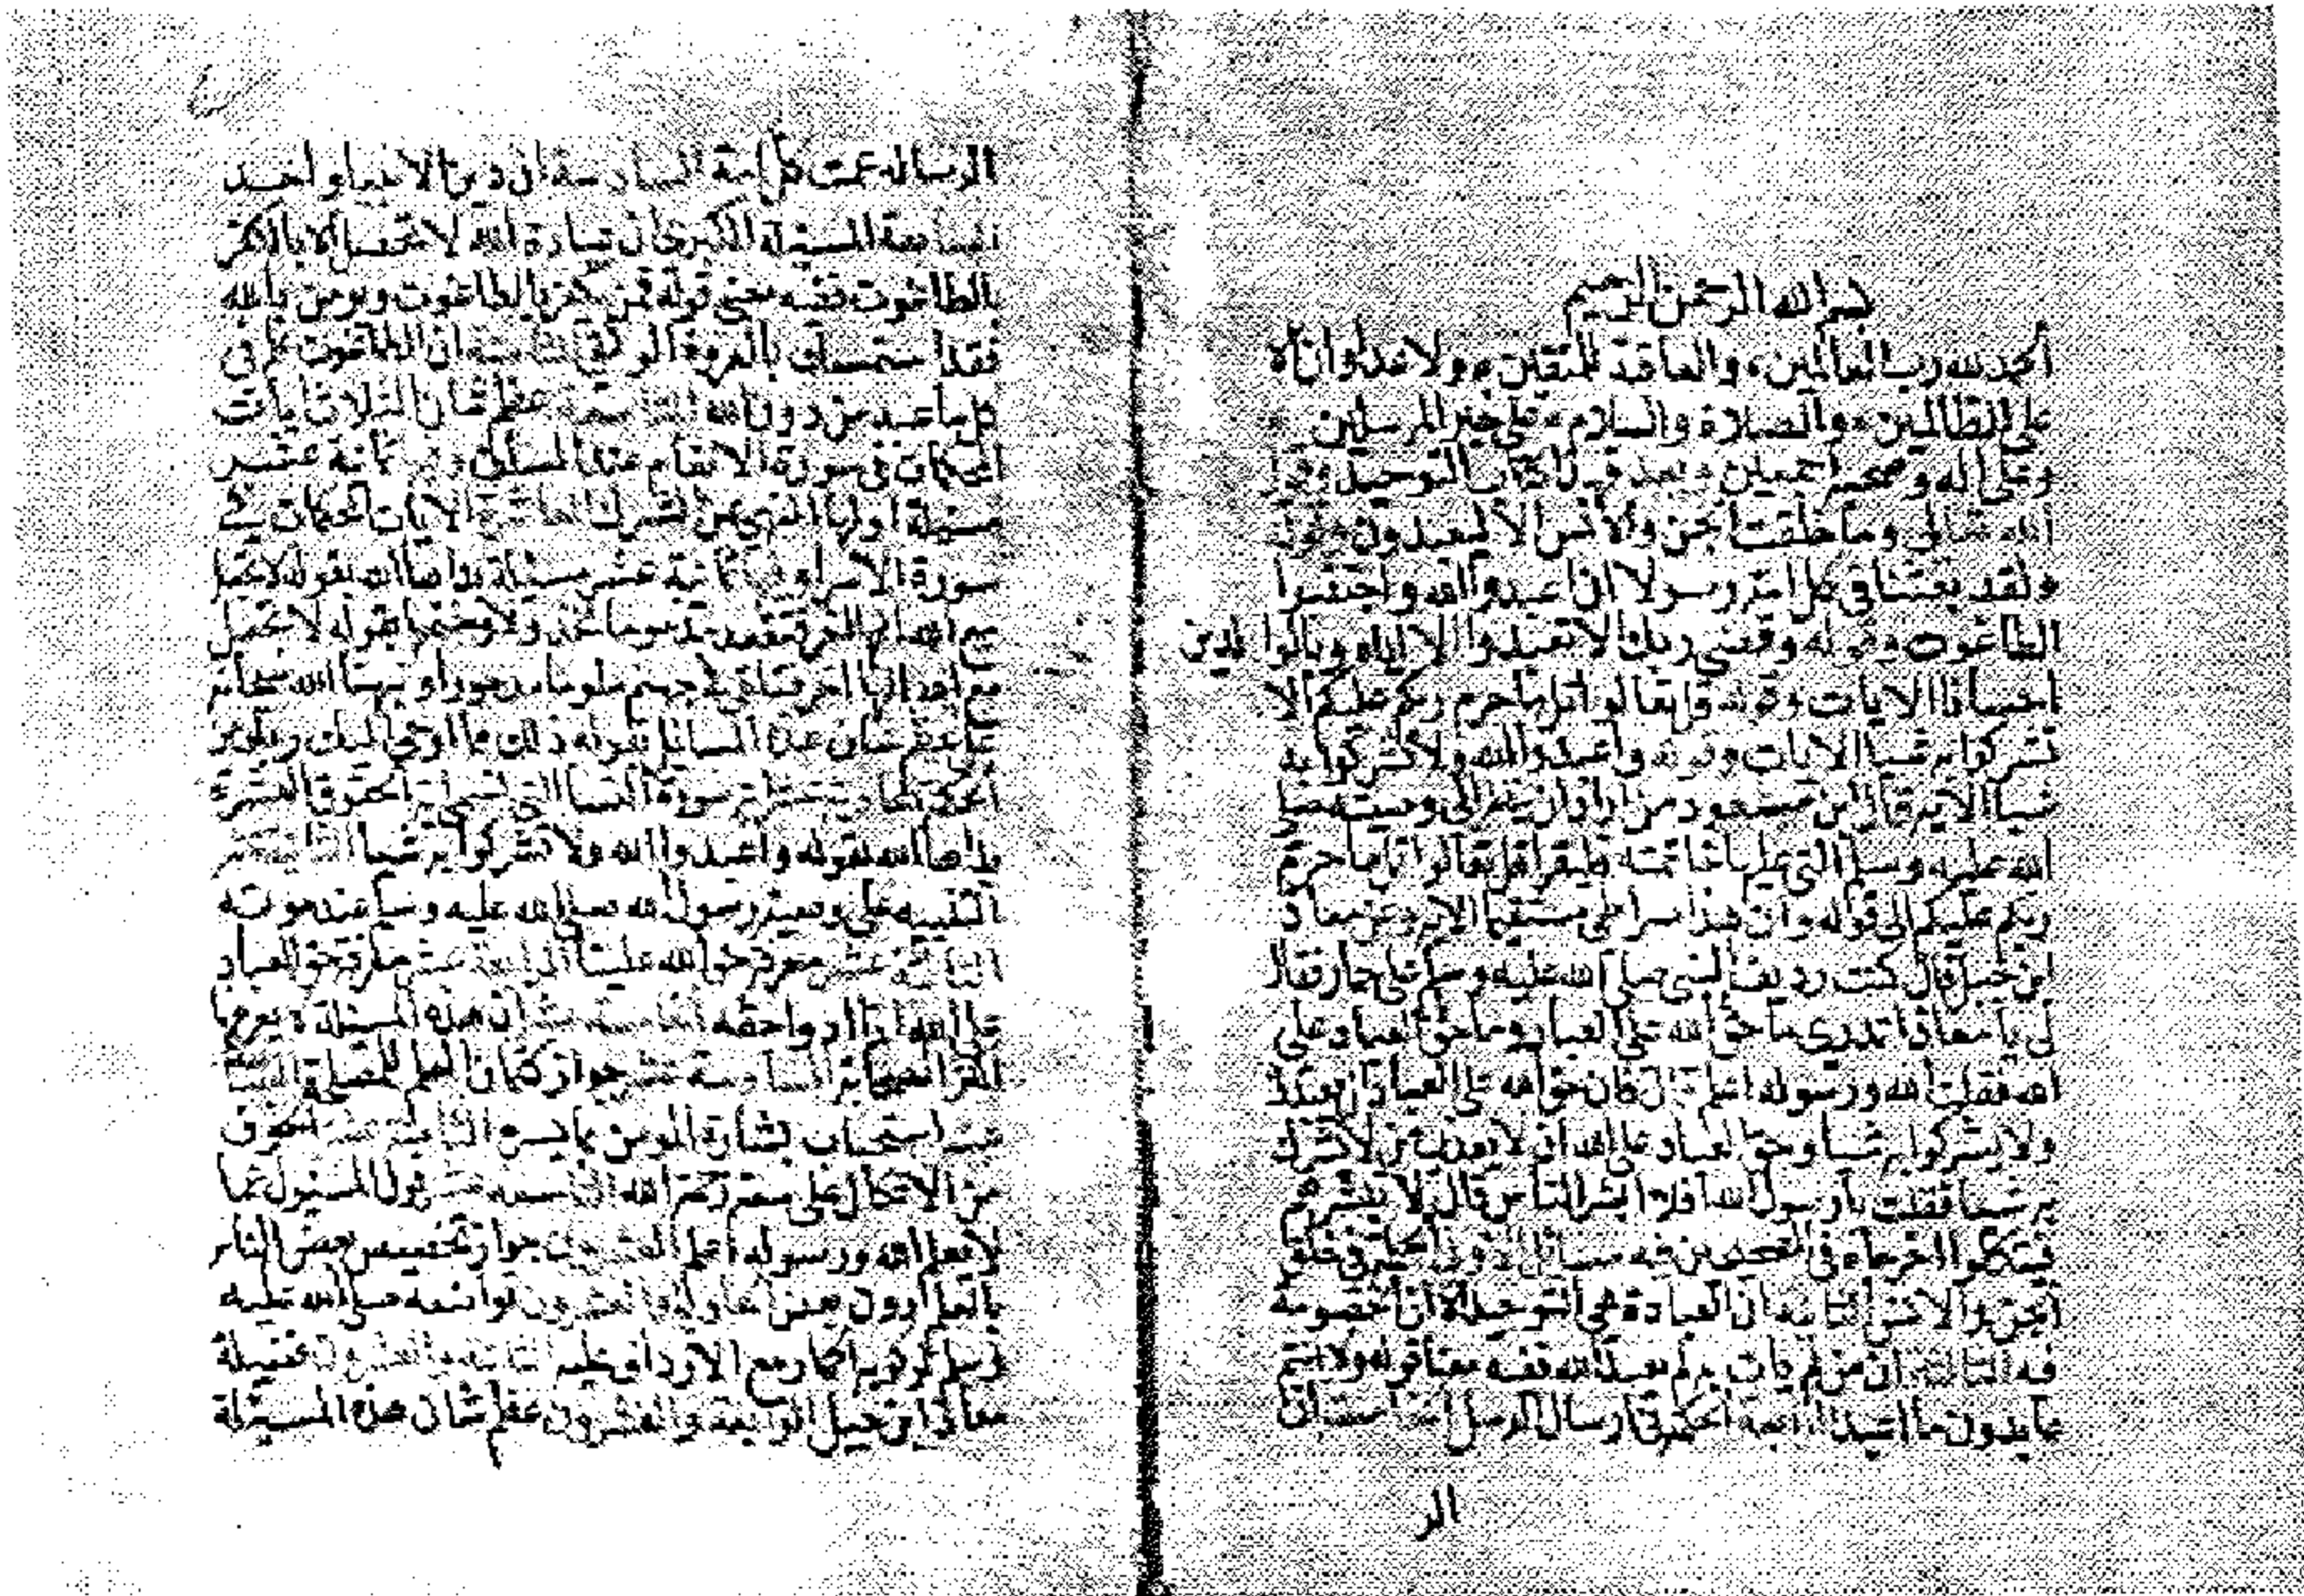 بسم الله الرحمن الرحيم
الحمد لله رب العالمين والعاقبة للمتقين ولا عدوان
على الظالمين والصلاة والسلام على خير المرسلين
وعلى اله وصحبه اجمعين وبعد كتاب التوحيد وقول
الله تعالى وما خلقت الجن والانس الا ليعبدون وقوله
ولقد بعثنا في كل امة رسولا ان اعبدوا الله واجتنبوا
الطاغوت وقوله وقضى ربك الا تعبدوا الا اياه وبالوالدين
احسانا الايات وقوله قل تعالوا اتل ما حرم ربكم عليكم الا
تشركوا به شيا الايات وقوله واعبدوا الله ولا تشركوا به
شيا الاية قال ابن مسعود من اراد ان ينظر الى وصية صلى
الله عليه وسلم التي عليها خاتمته فليقرا قل تعالوا اتل ما حرم
ربكم عليكم الى قوله وان هذا صراطي مستقيما الاية وعن معاذ
ابن جبل قال كنت رديف النبي صلى الله عليه وسلم على حمار فقال
لي يا معاذ اتدري ما حق الله على العباد وما حق العباد على
الله فقلت الله ورسوله اعلم قال فان حق الله على العباد ان يعبدوه
ولا يشركوا به شيا وحق العباد على الله ان لا يعذب من لا يشرك
به شيا فقلت يا رسول الله افلا ابشر الناس قال لا تبشرهم
فيتكلوا اخرجاه في الصحيحين فيه مسائل الاولى الحكمة في خلق
الجن والانس الثانية ان العبادة هي التوحيد لان الخصومة
فيه الثالثة ان من لم يات به لم يعبد الله ففيه معنا قوله ولا انتم
عابدون ما اعبد الرابعة الحكمة في ارسال الرسل الخامسة ان
الر
الرسالة عمت كل امة السادسة ان دين الانبيا واحد
السابعة المسئلة الكبرى ان عبادة الله لا تحصل الا بالكفر
بالطاغوت ففيه معنى قوله فمن يكفر بالطاغوت ويومن بالله
فقد استمسك بالعروة الوثقى الثامنة ان الطاغوت عام في
كل ما عبد من دون الله التاسعة عظم شان الثلاث ايات
المحكمات في سورة الانعام عند السلف وفيها ثمانية عشر
مسئلة اولها النهي عن الشرك العاشرة الايات المحكمات في
سورة الاسرا وفيها ثمانية عشر مسئلة بداها الله بقوله لا تجعل
مع الله الها اخر فتقعد مذموما مخذولا وختمها بقوله لا تجعل
مع الله الها اخر فتلقى في جهنم ملوما مدحورا ونبهنا الله سبحانه
على عظم شان هذه المسائل بقوله ذلك مما اوحى اليك ربك من
الحكمة الحادية عشر اية سورة النسا التي تسمى اية الحقوق العشرة
بداها الله بقوله واعبدوا الله ولا تشركوا به شيا الثانية عشر
التنبيه على وصية رسول الله صلى الله عليه وسلم عند موته
الثالثة عشر معرفة حق الله علينا الرابعة عشر معرفة حق العباد
على الله اذا ادوا حقه الخامسة عشر ان هذه المسئلة لا يعرفها
اكثر الصحابة السادسة عشر جواز كتمان العلم للمصلحة السابعة
عشر استحباب بشارة المومن بما يسره الثامنة عشر الخوف
من الاتكال على سعة رحمة الله التاسعة عشر قول المسئول عما
لا يعلم الله ورسوله اعلم العشرون جواز تخصيص بعض الناس
بالعلم دون بعض الحادية والعشرون تواضعه صلى الله عليه
وسلم لركوبه الحمار مع الارداف عليه الثانية والعشرون فضيلة
معاذ ابن جبل الرابعة والعشرون عظم شان هذه المسئلة